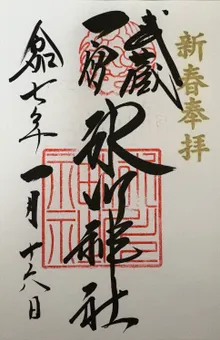 新春奉拝
武蔵
一宮
氷川神社
令和七年
一月十六日